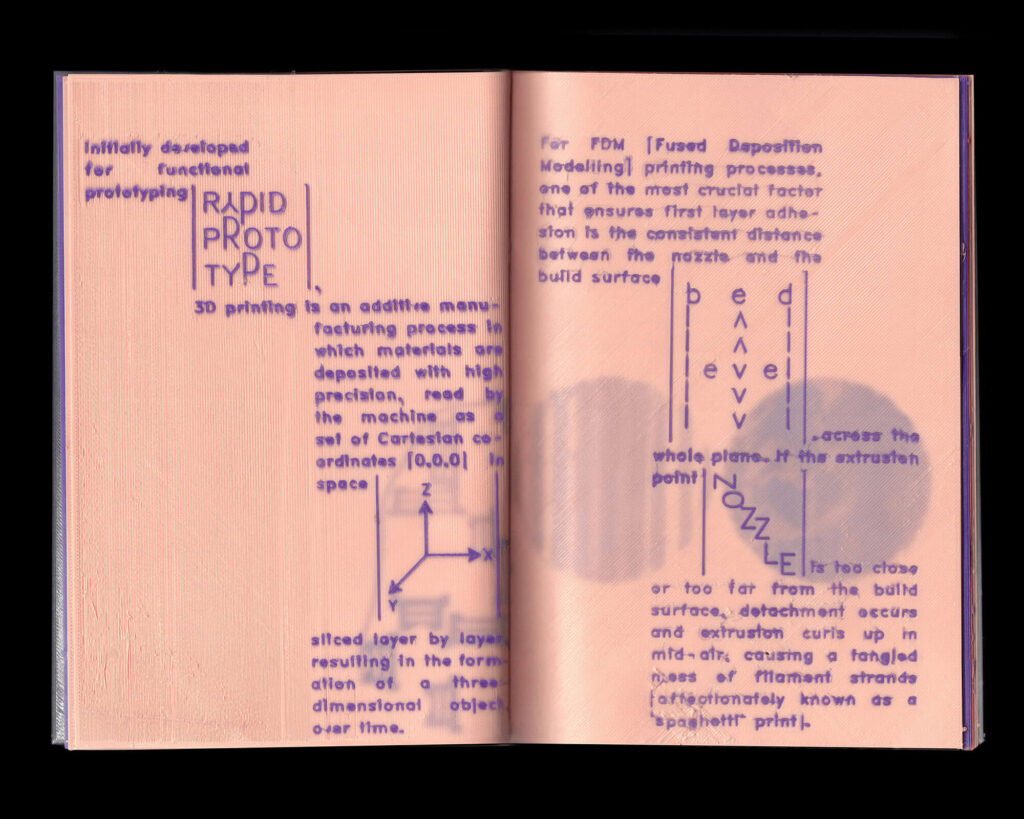 Initially developed
for functional
prototyping
RAPID
PROTO
TYPE
,
3D printing is an additive manu-
facturing process in
which materials are
deposited with high
precision, read by
the machine as a
set of Cartesian co-
ordinates [0,0,0] in
space
Z
X
Y
sliced layer by layer
resulting in the form-
ation of a three-
dimensional object
over time.
For FDM [Fused Deposition
Modelling] printing processes,
one of the most crucial factor
that ensures first layer adhe-
sion is the consistent distance
between the nozzle and the
build surface
b e d
e v e
, across the
whole plane. If the extrusion
point
NOZZLE
is too close
or too far from the build
surface, detachment occurs
and extrusion curls up in
mid-air, causing a tangled
mess of filament strands
[affectionately known as a
"spaghetti" print].